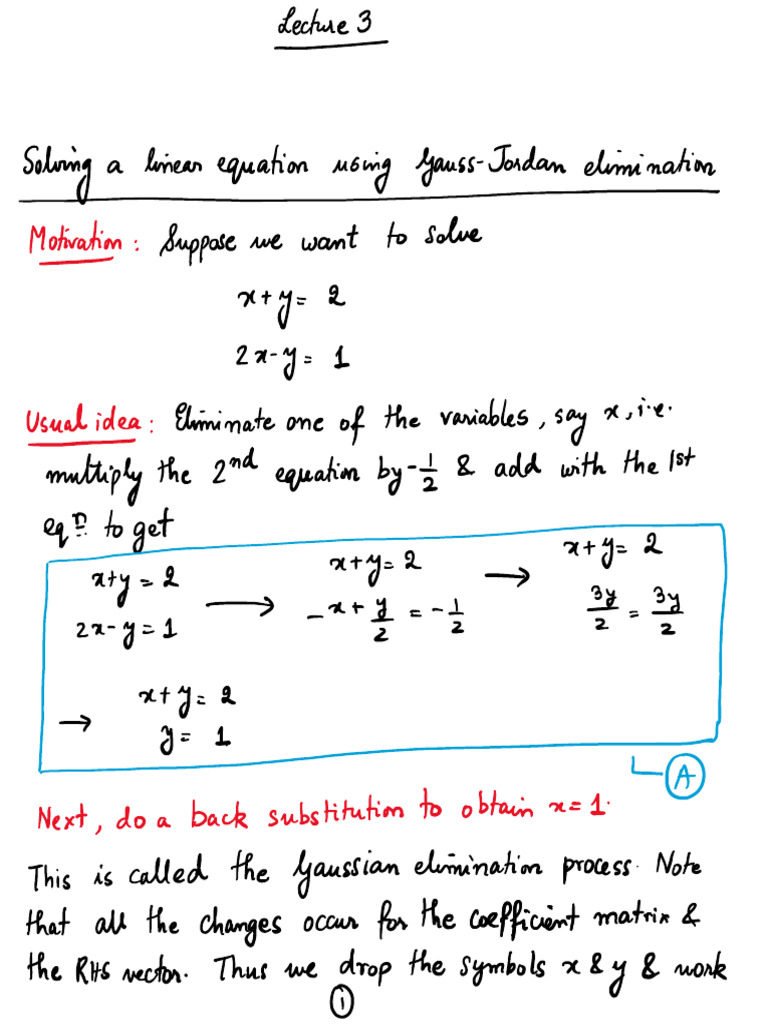 Lecture 3
Solving a linear equation using Gauss-Jordan elimination
Motivation: Suppose we want to solve
x+y= 2
2x-y= 1
Usual idea: Eliminate one of the variables, say x, i.e.
multiply the 2nd equation by -1/2 & add with the 1st
eqn. to get
x+y=2 → x+y=2 → x+y=2
2x-y=1 -x+y/2=-1/2 3y/2=3y/2
→ x+y=2
y=1
A
Next, do a back substitution to obtain x=1.
This is called the Gaussian elimination process. Note
that all the changes occur for the coefficient matrix &
the RHS vector. Thus we drop the symbols x & y & work
1